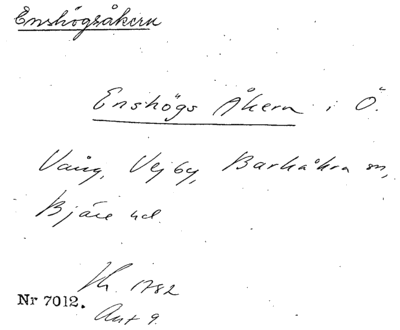 Enshögsåkern
Enshögs Åkern i Ö.
Vång, Vejby, Barkåkra sn,
Bjäre hd.
1782
Nr 7012.
Akt 9.